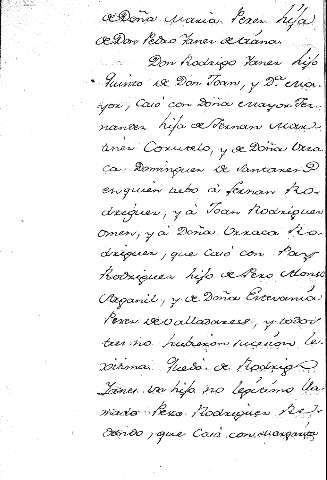 de Doña Maria Perez hija
de Don Pedro Yanez de
Don Rodrigo Yanez hijo
quinto de Don Joan, y D.ª Ma-
yor, Casó con doña Mayor Fer-
nandez hija de Fernan Mar-
tinez Coronelo, y de Doña Urra-
ca Dominguez de
en quien ubo á Fernan Ro-
driguez, y á Joan Rodriguez
omen, y á Doña Urraca Ro-
driguez, que Casó con Pay
Rodriguez hijo de Pero Alonso
y de Doña Estevania
Perez de Valladares, y todos
tres no hubieron sucesion le-
xitima. Quedó de Rodrigo
Yanez un hijo no legitimo lla-
mado Pero Rodriguez Re-
dondo, que Casó con Margarita